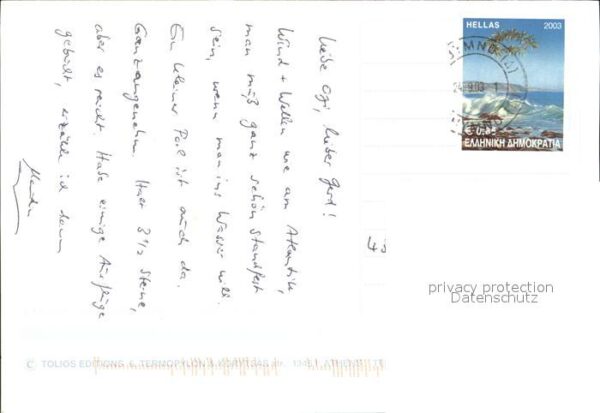 Liebe Ogi, lieber Gerd!
Wind + Wellen wie am Atlantik,
man muß ganz schön standfest
sein, wenn man ins Wasser will.
Ein kleiner Pool ist auch da.
Ganz angenehm. Hat 3 1/2 Sterne,
aber es reicht. Habe einige Ausflüge
gebucht, erzähle ich dann
HELLAS 2003
24.9.03
€ 0,65
ΕΛΛΗΝΙΚΗ ΔΗΜΟΚΡΑΤΙΑ
privacy protection
Datenschutz
© TOLIOS EDITIONS 6, TERMOPYLON